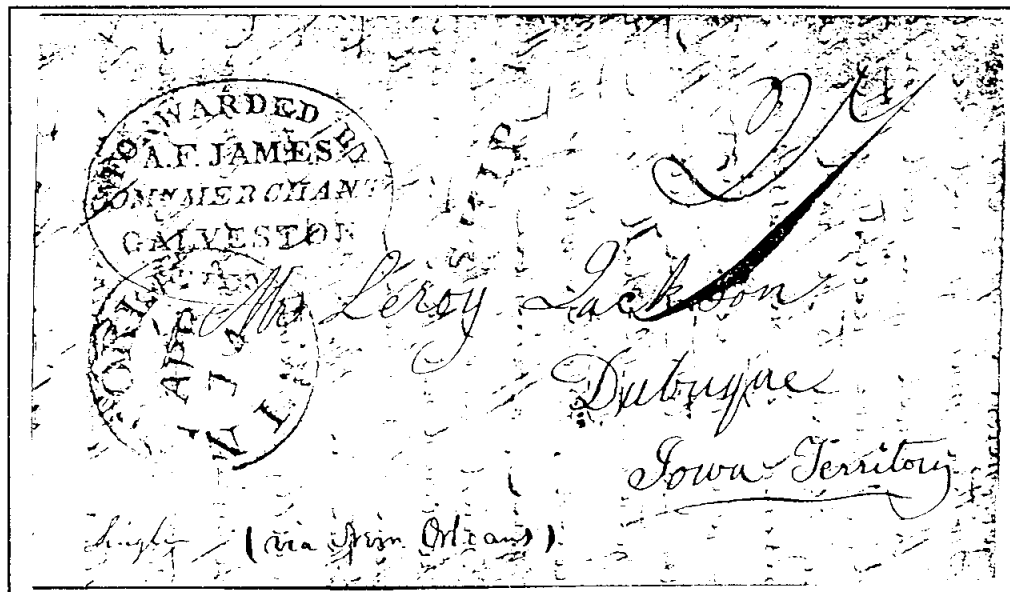 FORWARDED BY
A.F. JAMES
COMN MERCHANT
GALVESTON
SHIP
27
NEW ORLEANS
APR
Mr Leroy Jackson
Dubuque
Iowa Territory
Single
(via New Orleans)